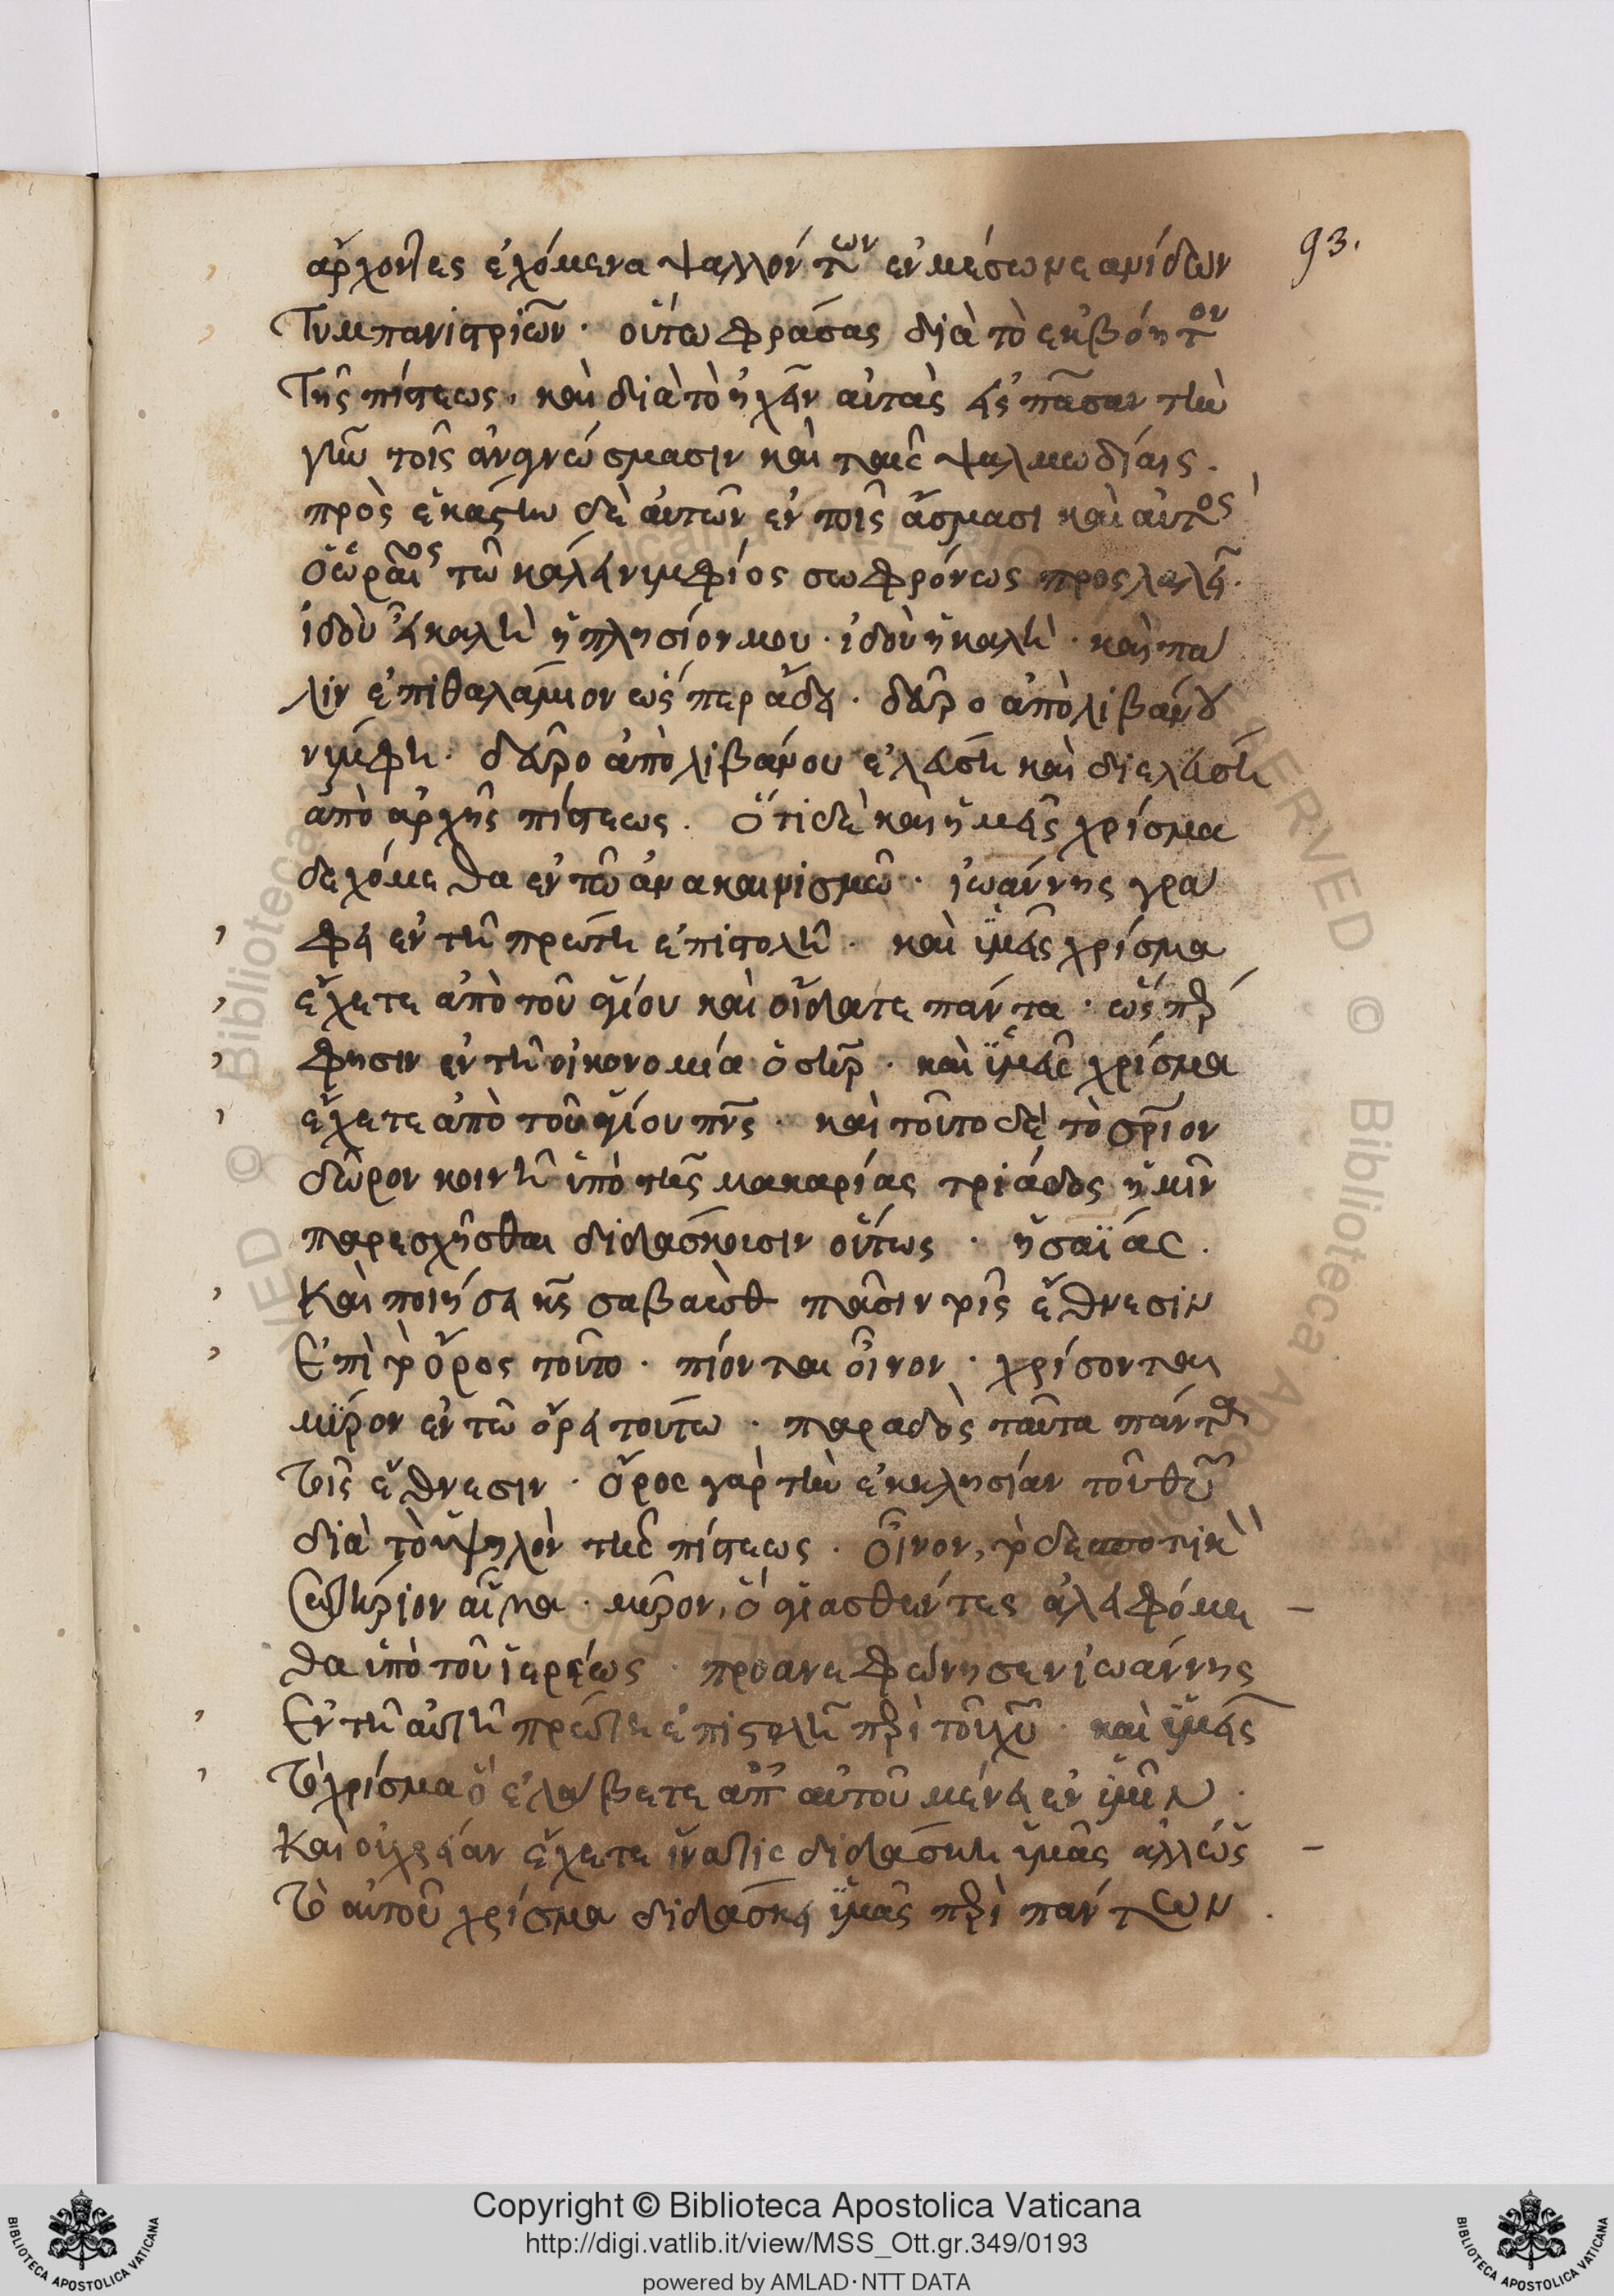 93.
ἄρχοντες ἐχόμενα ψαλλόντων ἐν μέσω νεανίδων
τυμπανιστριῶν · οὕτω φράσας διὰ τὸ ἐκβόητον
τῆς πίστεως, καὶ διὰ τὸ ἠχεῖν αὐτὰς εἰς πᾶσαν τὴν
γῆν τοῖς ἀναγνώσμασιν καὶ ταῖς ψαλμωδίαις.
πρὸς ἑκάστην δὲ αὐτῶν ἐν τοῖς ἄσμασι καὶ αὐτὸς
ὁ ὡραῖος τῶ κάλλει νυμφίος σωφρόνως προσλαλεῖ.
ἰδοὺ εἶ καλὴ ἡ πλησίον μου · ἰδοὺ ἡ καλὴ · καὶ πα
λιν ἐπιθαλάμιον ὥσπερ ἄδει · δεῦρο ἀπὸ λιβάνου
νύμφη · δεῦρο ἀπὸ λιβάνου ἐλεύση καὶ διελεύση
ἀπὸ ἀρχῆς πίστεως. ὅτι δὲ καὶ ἡμεῖς χρίσμα
δεχόμεθα ἐν τῶ ἀνακαινισμῶ · ἰωάννης γρα
φει ἐν τῆ πρώτη ἐπιστολῆ · καὶ ὑμεῖς χρίσμα
ἔχετε ἀπὸ τοῦ ἁγίου καὶ οἴδατε πάντα · ὥσπερ
φησιν ἐν τῆ οἰκονομία ὁ σηρ · καὶ ὑμεῖς χρίσμα
ἔχετε ἀπὸ τοῦ ἁγίου πνς · καὶ τοῦτο δὲ τὸ σριον
δῶρον κοινῆ ὑπὸ τῆς μακαρίας τριάδος ἡμῖν
παρεσχῆσθαι διδάσκουσιν οὕτως · ἡσαΐας.
Καὶ ποιήσει κς σαβαὼθ πᾶσιν τοῖς ἔθνεσιν
ἐπὶ τὸ ὄρος τοῦτο · πίονται οἶνον · χρίσονται
μύρον ἐν τῶ ὄρει τούτω · παραδὸς ταῦτα πάντα
τοῖς ἔθνεσιν · ὄρος γὰρ τὴν ἐκκλησίαν τοῦ θυ
διὰ τὸ ὑψηλὸν τῆς πίστεως · οἶνον, τὸ δεσποτικὸν
σωτήριον αἷμα · μύρον, ὃ ἁγιασθέντες ἀλειφόμε
θα ὑπὸ τοῦ ἱερέως · προανεφώνησεν ἰωάννης
ἐν τῆ αὐτῆ πρώτη ἐπιστολῆ περὶ τοῦ χυ · καὶ ὑμεῖς
τὸ χρίσμα ὃ ἐλάβετε ἀπ αὐτοῦ μένει ἐν ὑμῖν ·
καὶ οὐ χρείαν ἔχετε ἵνα τὶς διδάσκη ὑμᾶς ἀλλ ὡς
τὸ αὐτοῦ χρίσμα διδάσκει ὑμᾶς περὶ πάντων.
Copyright © Biblioteca Apostolica Vaticana
http://digi.vatlib.it/view/MSS_Ott.gr.349/0193
powered by AMLAD·NTT DATA
BIBLIOTECA APOSTOLICA VATICANA
BIBLIOTECA APOSTOLICA VATICANA